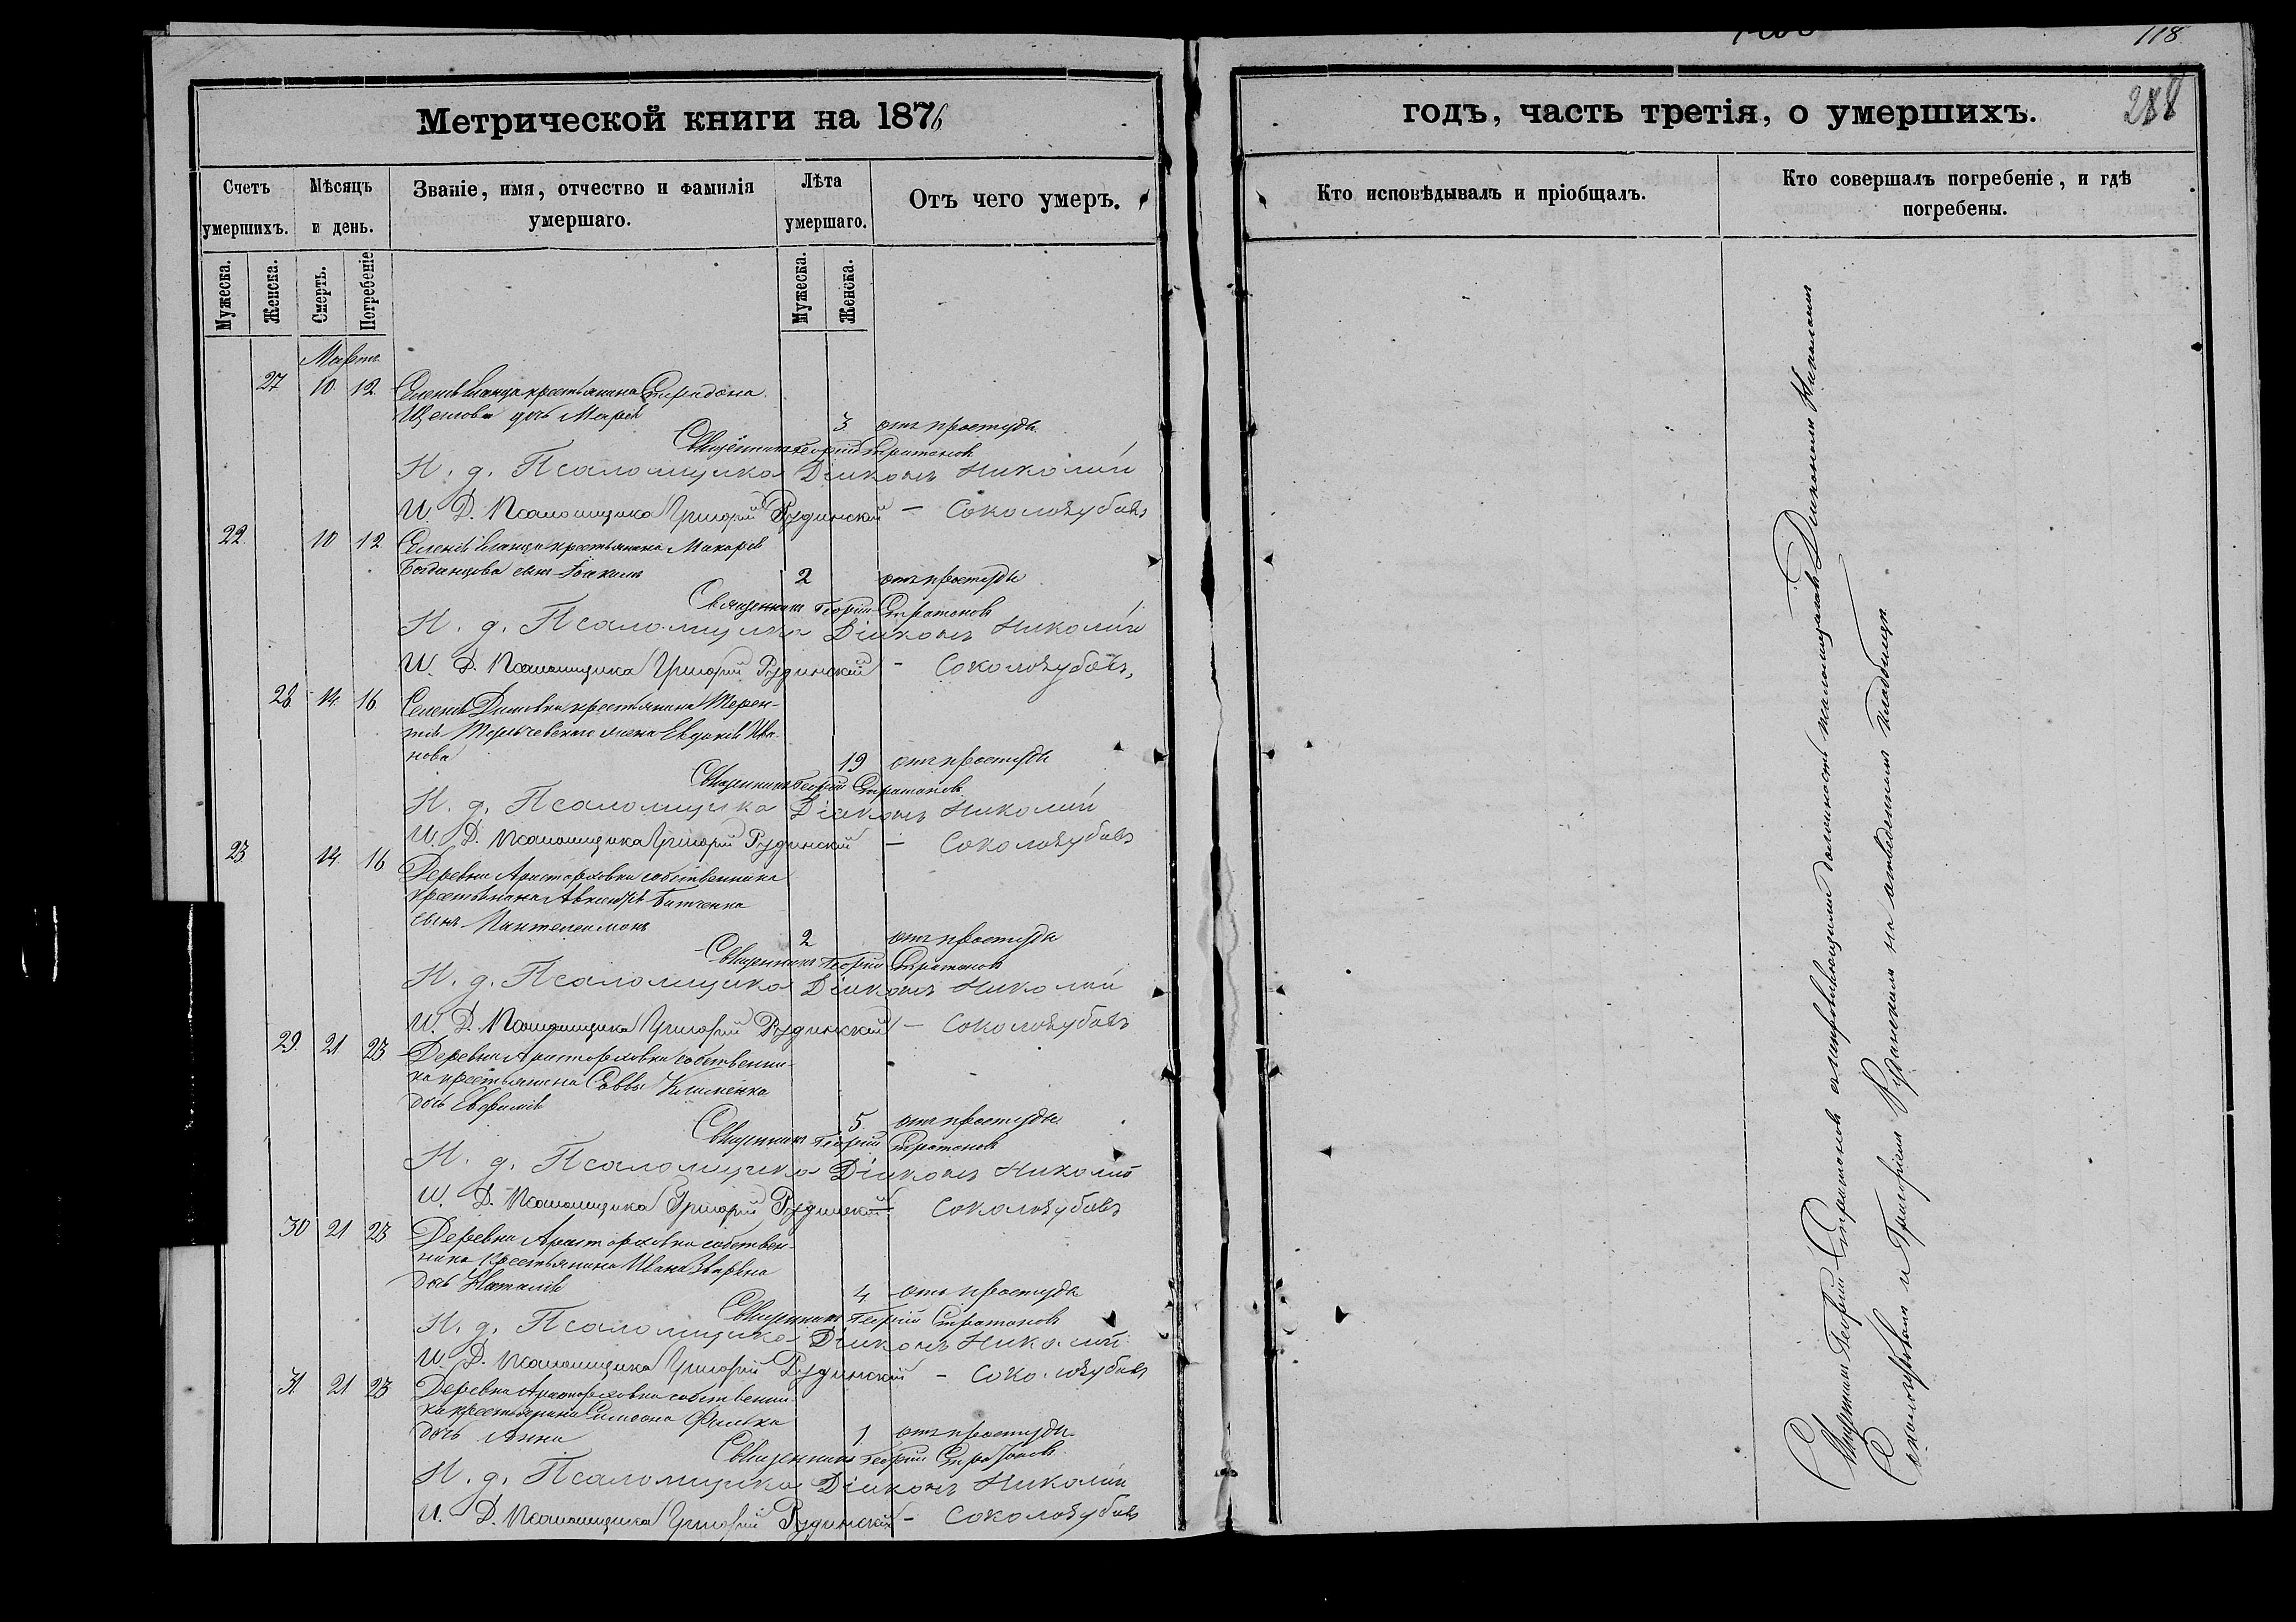 118
288
Метрической книги на 1876
годъ, часть третія, о умершихъ.
Счетъ умершихъ.
Мѣсяцъ и день.
Званіе, имя, отчество и фамилія умершаго.
Лѣта умершаго.
Отъ чего умеръ.
Кто исповѣдывалъ и пріобщалъ.
Кто совершалъ погребеніе, и гдѣ погребены.
Мужеска.
Женска.
Смерть.
Погребеніе
Мужеска.
Женска.
Мартъ
27 10 12 крестьянина Спиридона
дочь Марія 3 отъ простуды
Священникъ Георгій Стратоновъ
И. д. Псаломщика Діаконъ Николай
И. Д. Псаломщика Григорій Рудинскій – Соколозубовъ
22 10 12 крестьянина Макарія
Богданцова сынъ Іоакимъ 2 отъ простуды
Священникъ Георгій Стратоновъ
И. д. Псаломщика Діаконъ Николай
И. Д. Псаломщика Григорій Рудинскій – Соколозубовъ
28 14 16 крестьянина Терен-
тія жена Евдокія Ива-
нова 19 отъ простуды
Священникъ Георгій Стратоновъ
И. д. Псаломщика Діаконъ Николай
И. Д. Псаломщика Григорій Рудинскій – Соколозубовъ
23 14 16 Деревни Аристарховки собственника
крестьянина
сынъ Пантелеимонъ 2 отъ простуды
Священникъ Георгій Стратоновъ
И. д. Псаломщика Діаконъ Николай
И. Д. Псаломщика Григорій Рудинскій – Соколозубовъ
29 21 23 Деревни Аристарховки собственни-
ка крестьянина Саввы Клименка
дочь Евфимія 5 отъ простуды
Священникъ Георгій Стратоновъ
И. д. Псаломщика Діаконъ Николай
И. Д. Псаломщика Григорій Рудинскій Соколозубовъ
30 21 23 Деревни Аристарховки собствен-
ника крестьянина Ивана
дочь Наталія 4 отъ простуды
Священникъ Георгій Стратоновъ
И. д. Псаломщика Діаконъ Николай
И. Д. Псаломщика Григорій Рудинскій – Соколозубовъ
31 21 23 Деревни Аристарховки собственни-
ка крестьянина Симеона
дочь Анна 1 отъ простуды
Священникъ Георгій Стратоновъ
И. д. Псаломщика Діаконъ Николай
И. Д. Псаломщика Григорій Рудинскій – Соколозубовъ
Священникъ Георгій Стратоновъ съ исправляющими должность псаломщиковъ Діакономъ Николаемъ
Соколозубовымъ и Григоріемъ Рудинскимъ на отведенномъ кладбищѣ